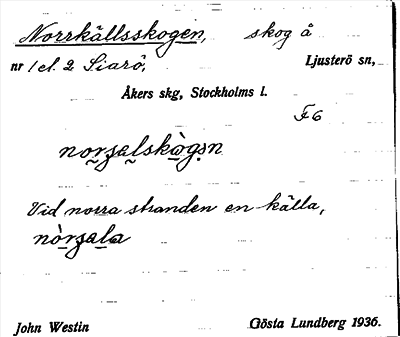 Norrkällsskogen, skog å
nr 1 el. 2 Siarö, Ljusterö sn,
Åkers skg, Stockholms l.
F6
norʒalskògȧn
Vid norra stranden en källa,
nòrʒala
John Westin Gösta Lundberg 1936.